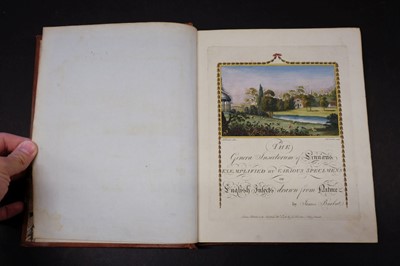 THE
Genera Insectorum of Linnæus
EXEMPLIFIED BY VARIOUS SPECIMENS
OF
English Insects drawn from Nature
by James Barbut